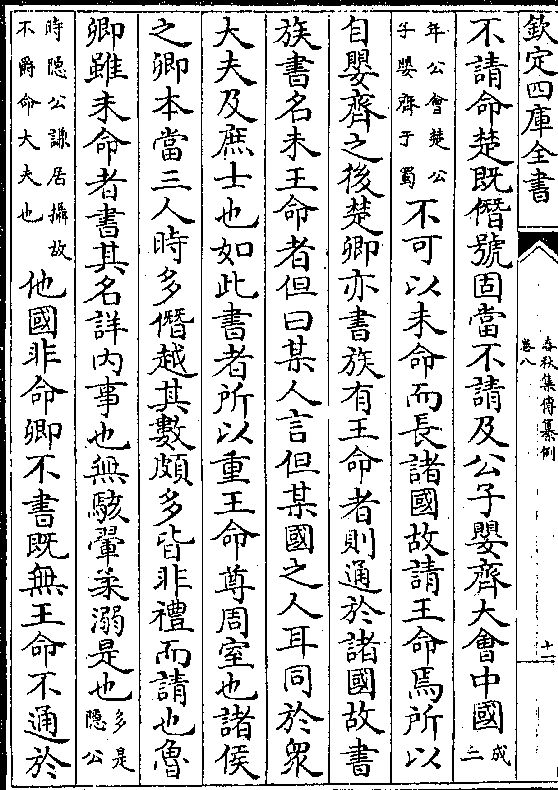 欽定四庫全書
春秋集傳纂例
卷八
十一
不請命楚既僭號固當不請及公子嬰齊大會中國成二
年公會楚公子嬰齊于蜀不可以未命而長諸國故請王命焉所以
自嬰齊之後楚卿亦書族有王命者則通於諸國故書
族書名未王命者但曰某人言但某國之人耳同於衆
大夫及庶士也如此書者所以重王命尊周室也諸侯
之卿本當三人時多僭越其數頗多皆非禮而請也魯
卿雖未命者書其名詳内事也無駭翬柔溺是也多是隱公
時隠公謙居攝故不爵命大夫也他國非命卿不書既無王命不通於